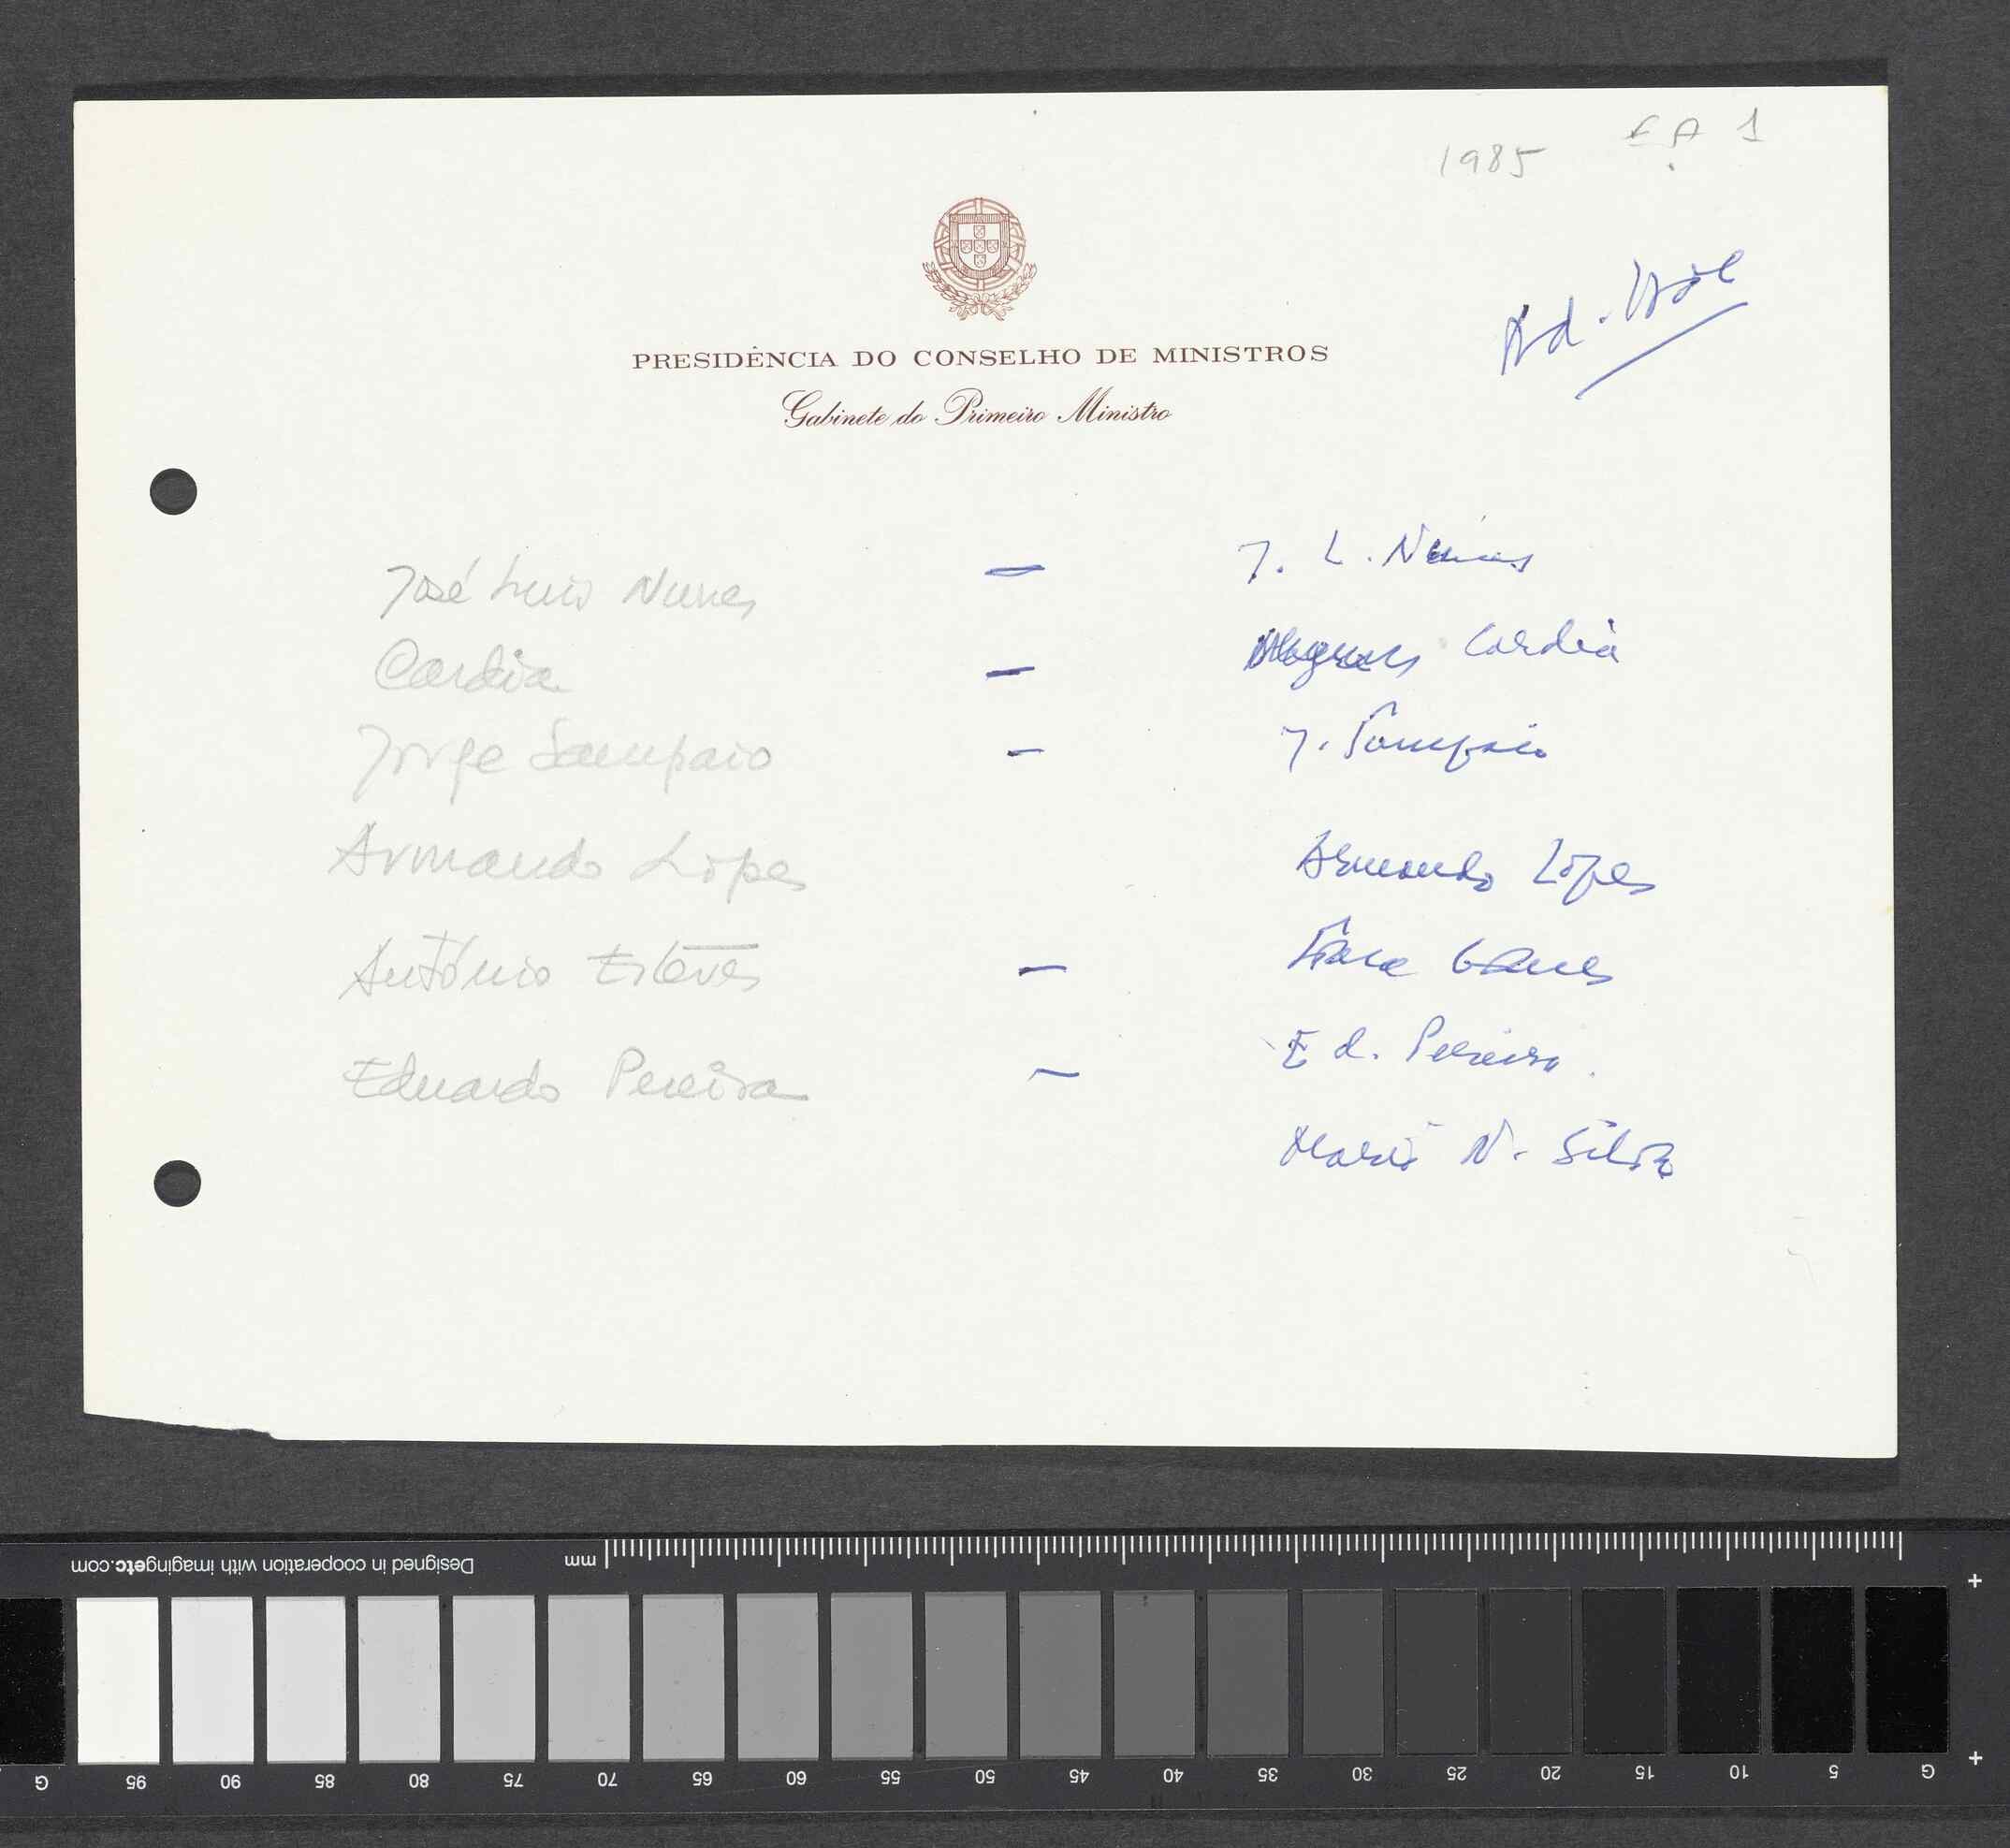 1985 1
PRESIDÊNCIA DO CONSELHO DE MINISTROS
Gabinete do Primeiro Ministro
José Luis Nunes — J. L. Nunes
Cardia — Cardia
Jorge Sampaio — J. Sampaio
Armando Lopes Armando Lopes
António Esteves —
Eduardo Pereira — Ed. Pereira.
Mario N. Silva
mm
Designed in cooperation with imagingetc.com
G 95 90 85 80 75 70 65 60 55 50 45 40 35 30 25 20 15 10 5 G